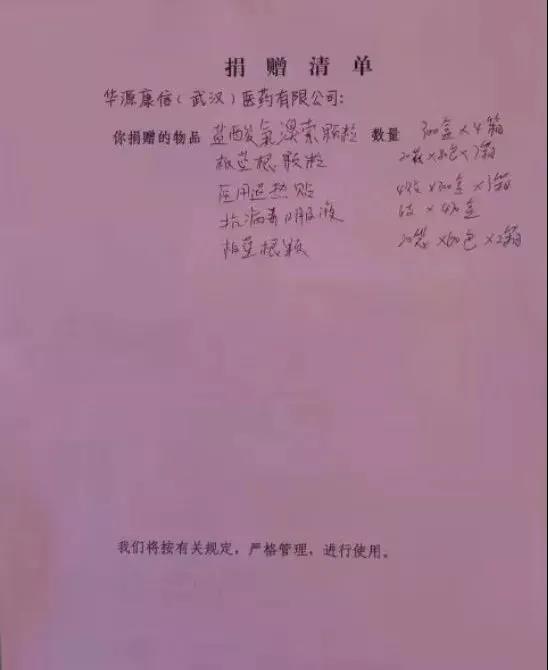 捐赠清单
华源康信(武汉)医药有限公司:
你捐赠的物品 盐酸氨溴索颗粒 数量 300盒×4箱
板蓝根颗粒 20袋×
医用退热贴
抗病毒口服液
板蓝根颗 20袋×60包×2箱
我们将按有关规定,严格管理,进行使用。